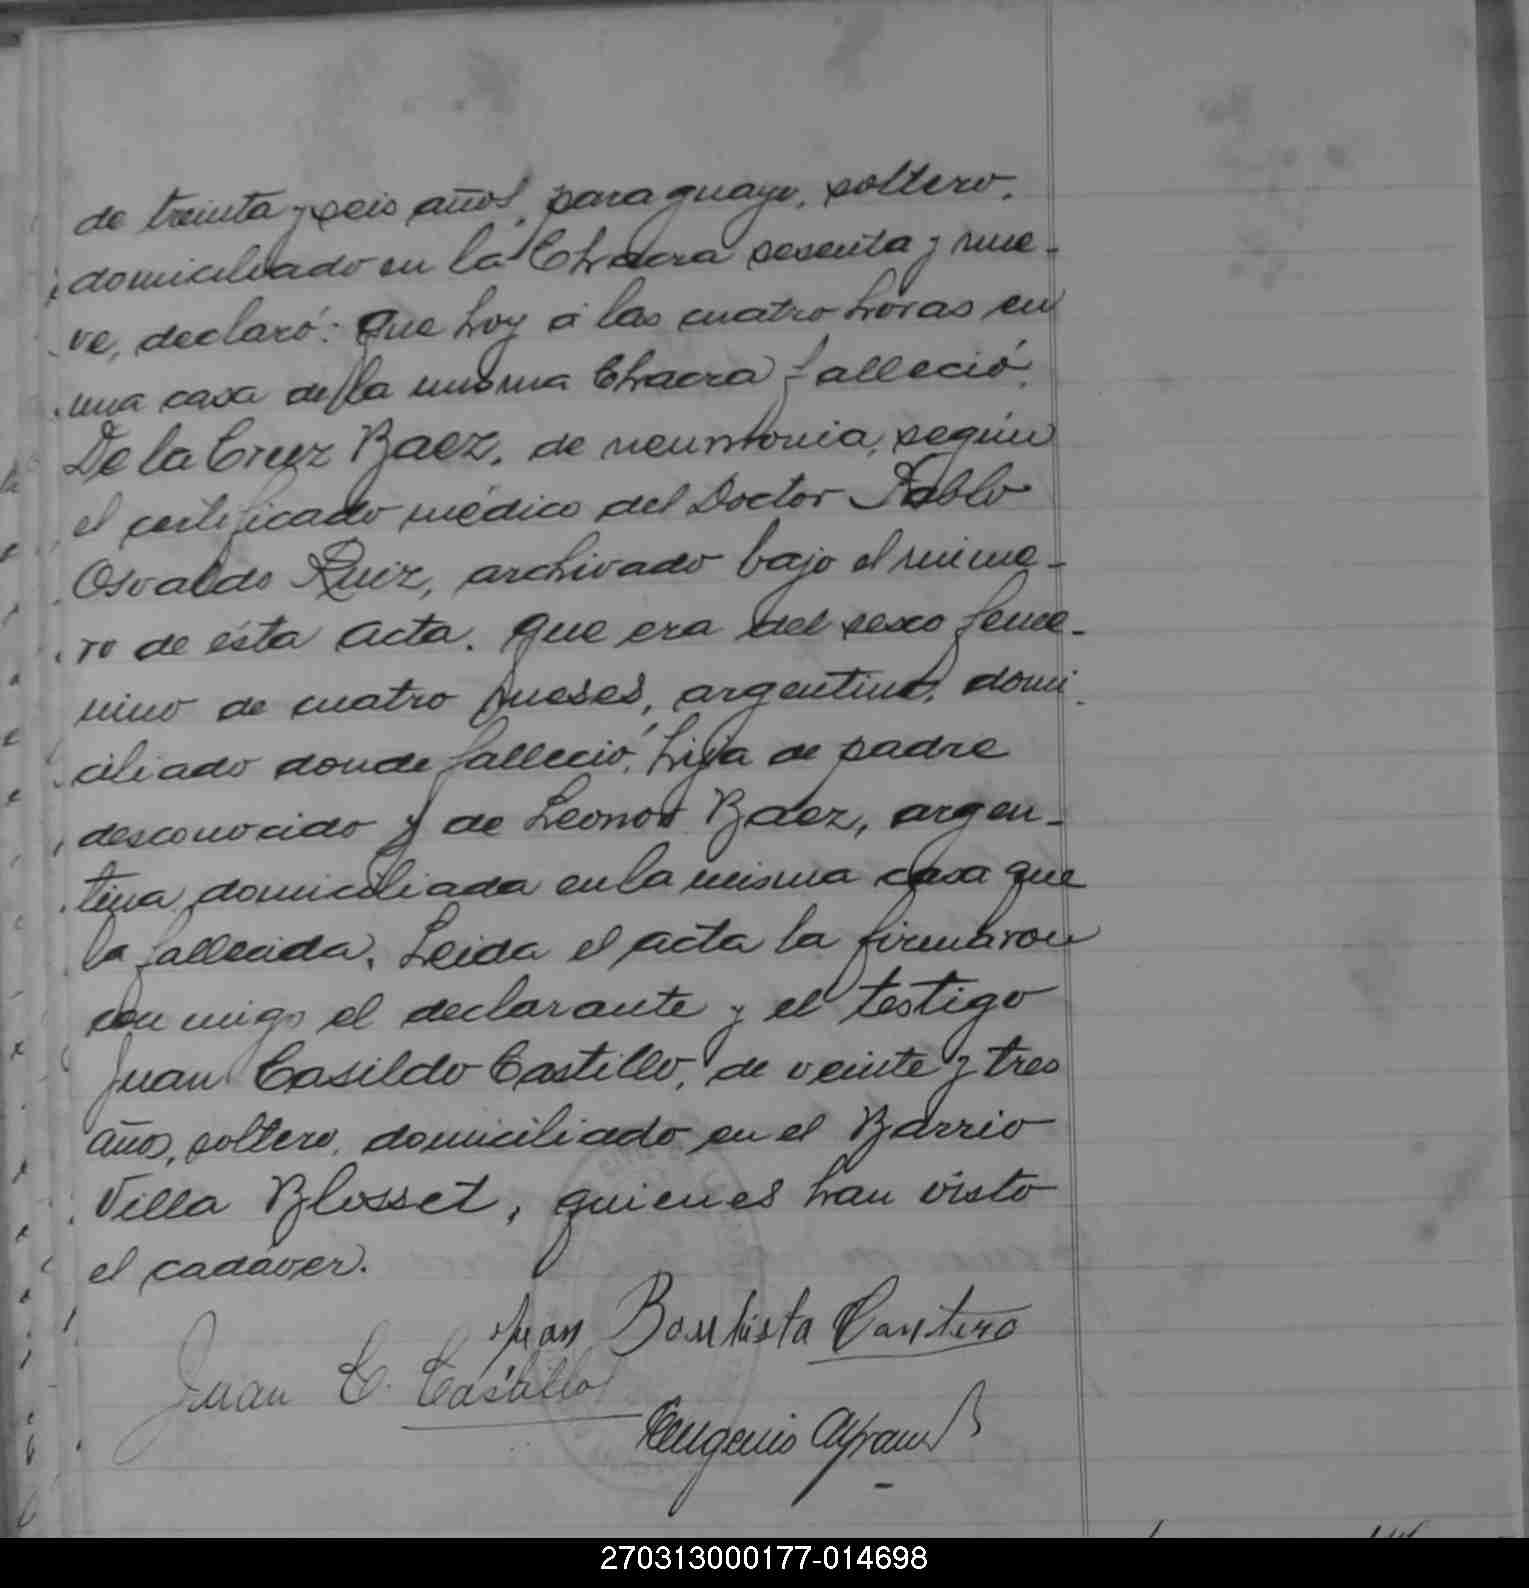 de treinta y seis años, paraguayo, soltero,
domiciliado en la Chacra sesenta y nue-
ve, declaró: Que hoy á las cuatro horas en
una casa de la misma Chacra falleció
De la Cruz Baez, de neumonia, según
el certificado médico del Doctor Pablo
Osvaldo Ruiz, archivado bajo el núme-
ro de ésta acta. Que era del sexo feme-
nino de cuatro meses, argentino, domi
ciliado donde falleció, hija de padre
desconocido y de Leonor Baez, argen-
tina, domiciliada en la misma casa que
la fallecida. Leida el acta la firmaron
con migo el declarante y el testigo
Juan Casildo Castillo, de veinte y tres
años, soltero, domiciliado en el Barrio
Villa Blosset, quienes han visto
el cadáver.
Juan Bautista Cantero
Juan C. Castillo
Eugenio
270313000177-014698